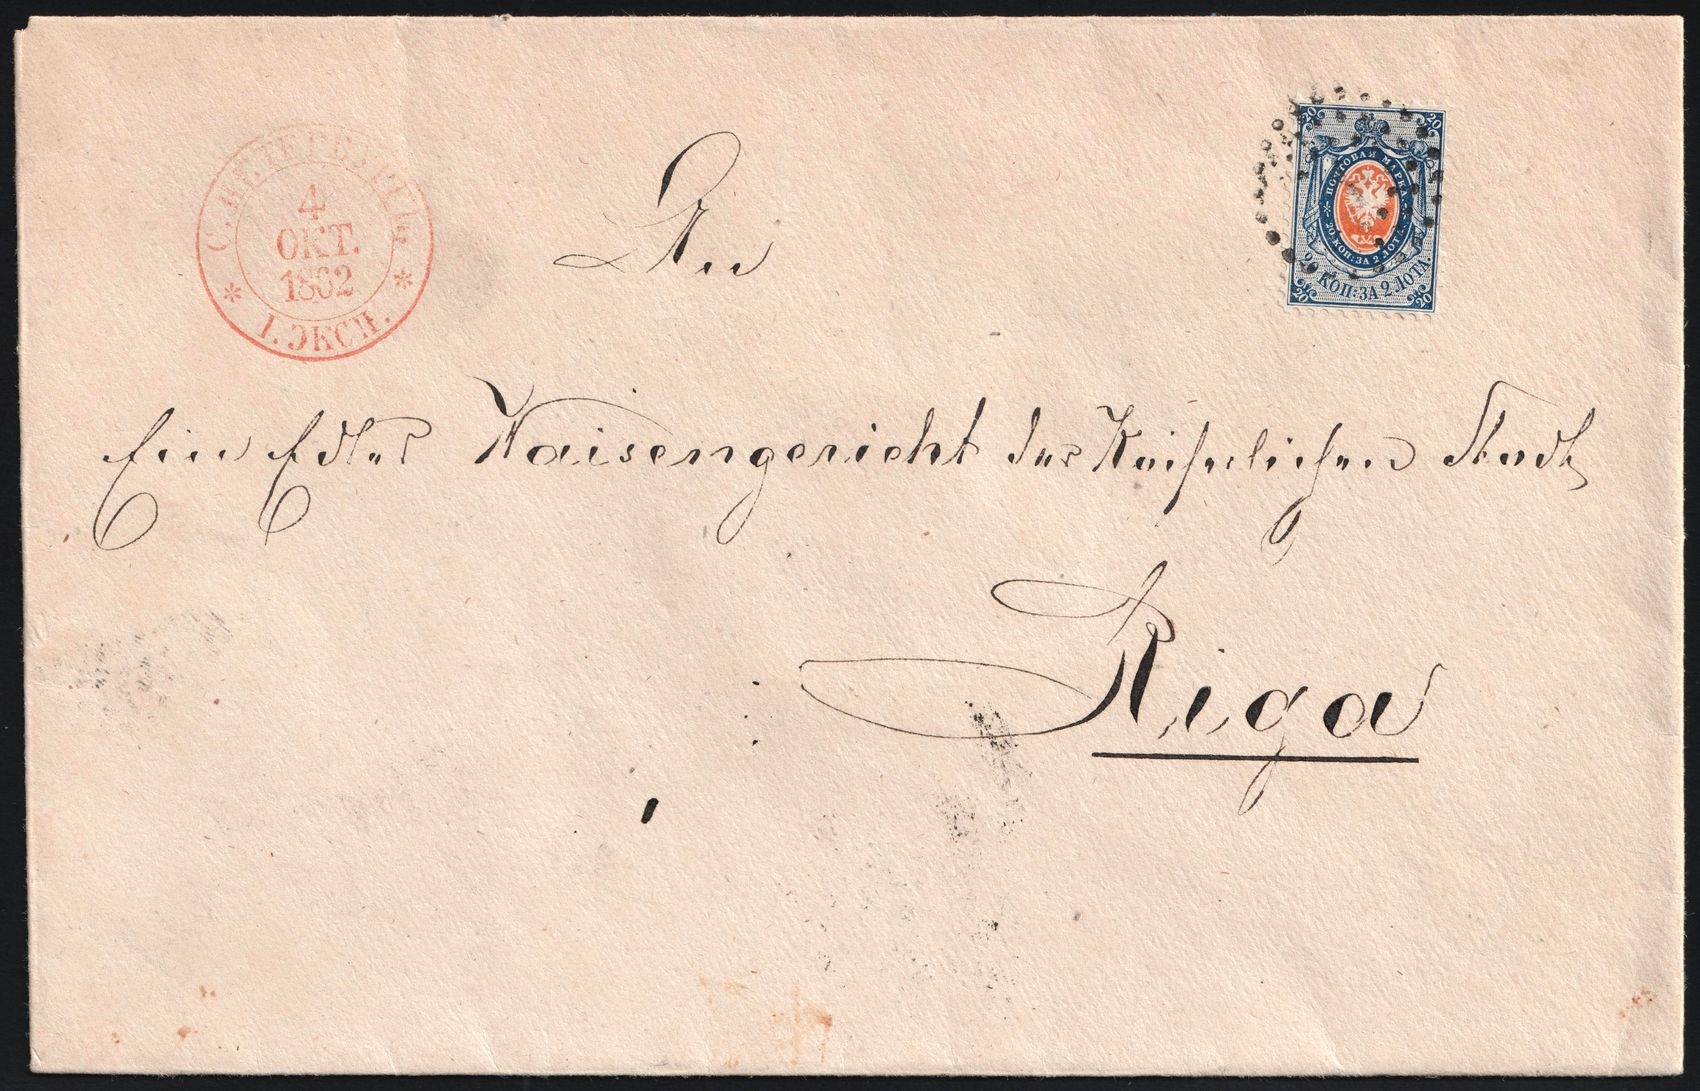 С.ПЕТЕРБУРГЪ.
4
ОКТ.
1862
* 1.ЭКСП. *
20 20
ПОЧТОВАЯ МАРКА
* 20 КОП: ЗА 2 ЛОТА. *
20 КОП: ЗА 2 ЛОТА.
20 20
An
Ein Edles Waisengericht der Kaiserlichen Stadt
Riga